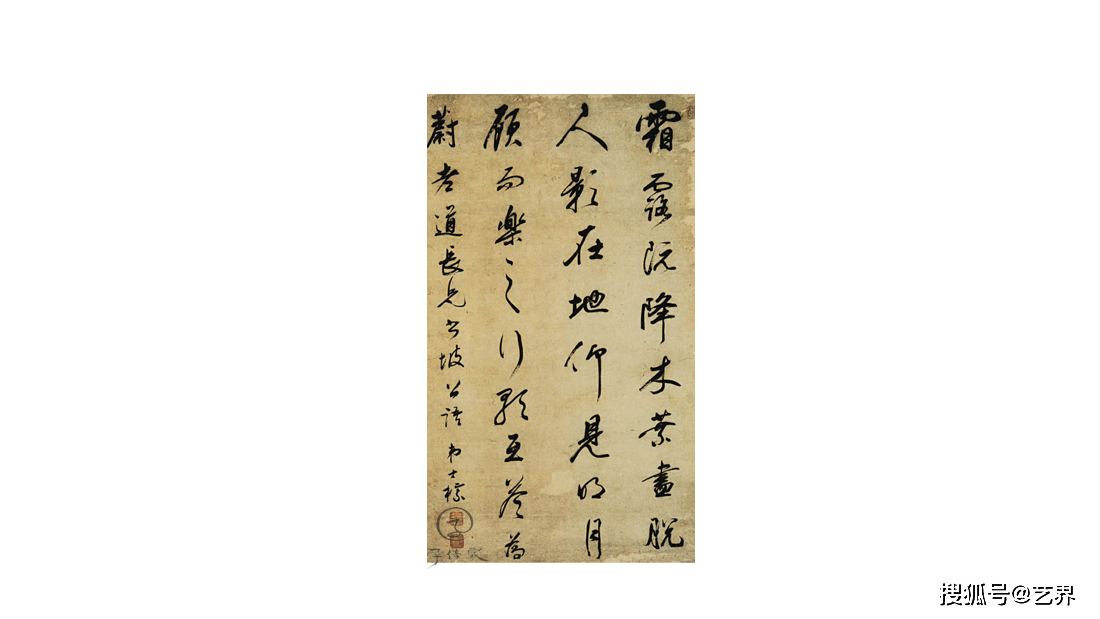 霜露既降木葉盡脫
人影在地仰見明月
顧而樂之行歌互答為
蔚老道長兄書坡公語 弟士標
搜狐号@艺界